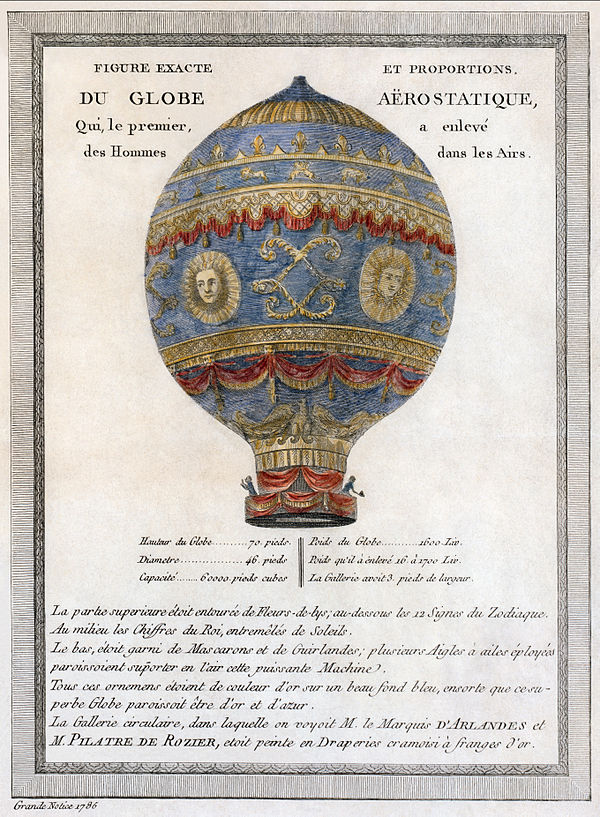 FIGURE EXACTE ET PROPORTIONS.
DU GLOBE AËROSTATIQUE,
Qui, le premier, a enlevé
des Hommes dans les Airs.
Hauteur du Globe..........70. pieds.
Diametre..................46. pieds
Capacité.......60000. pieds cubes
Poids du Globe...........1600. Liv.
Poids qu'il à enlevé 16. à 1700 Liv.
La Gallerie avoit 3. pieds de largeur.
La partie superieure étoit entourée de Fleurs-de-lys; au-dessous les 12 Signes du Zodiaque.
Au milieu les Chiffres du Roi, entremêlés de Soleils.
Le bas, étoit garni de Mascarons et de Guirlandes; plusieurs Aigles à ailes éployées
paroissoient suporter en l'air cette puissante Machine.
Tous ces ornemens étoient de couleur d'or sur un beau fond bleu, ensorte que ce su-
perbe Globe paroissoit être d'or et d'azur.
La Gallerie circulaire, dans laquelle on voyoit M. le Marquis D'ARLANDES et
M. PILATRE DE ROZIER, etoit peinte en Draperies cramoisi à franges d'or.
Grande Notice 1786